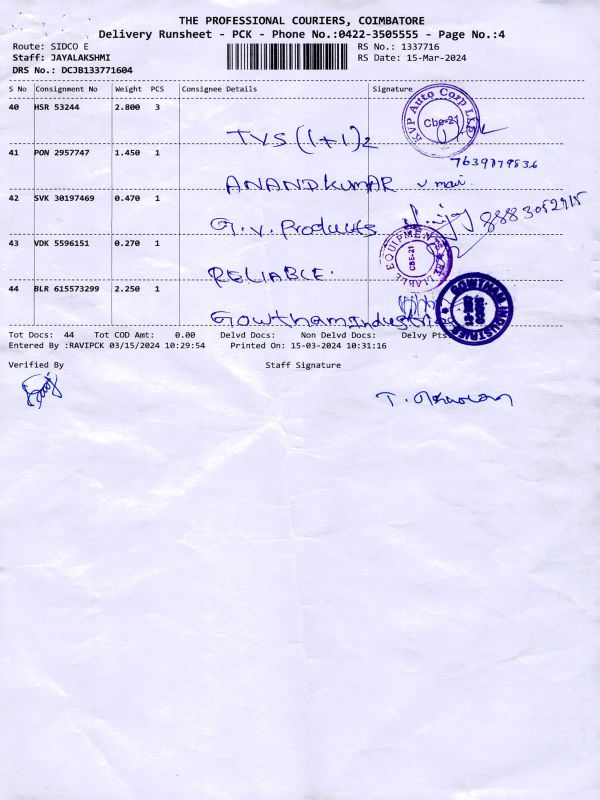 THE PROFESSIONAL COURIERS, COIMBATORE
Delivery Runsheet - PCK - Phone No.:0422-3505555 - Page No.:4
Route: SIDCO E
RS No.: 1337716
Staff: JAYALAKSHMI
RS Date: 15-Mar-2024
DRS No.: DCJB133771604
S No Consignment No Weight PCS Consignee Details Signature
40 HSR 53244 2.800 3
KVP Auto Corp LLP
Cbe-21
TVS (1+1)2
41 PON 2957747 1.450 1
ANANDKUMAR
42 SVK 30197469 0.470 1
G.V. Products
43 VDK 5596151 0.270 1
RELIABLE EQUIPMENTS
CBE-21
RELIABLE.
44 BLR 615573299 2.250 1
GOWTHAM INDUSTRIES
Gowtham industri
Tot Docs: 44 Tot COD Amt: 0.00 Delvd Docs: Non Delvd Docs: Delvy Pts
Entered By :RAVIPCK 03/15/2024 10:29:54 Printed On: 15-03-2024 10:31:16
Verified By Staff Signature